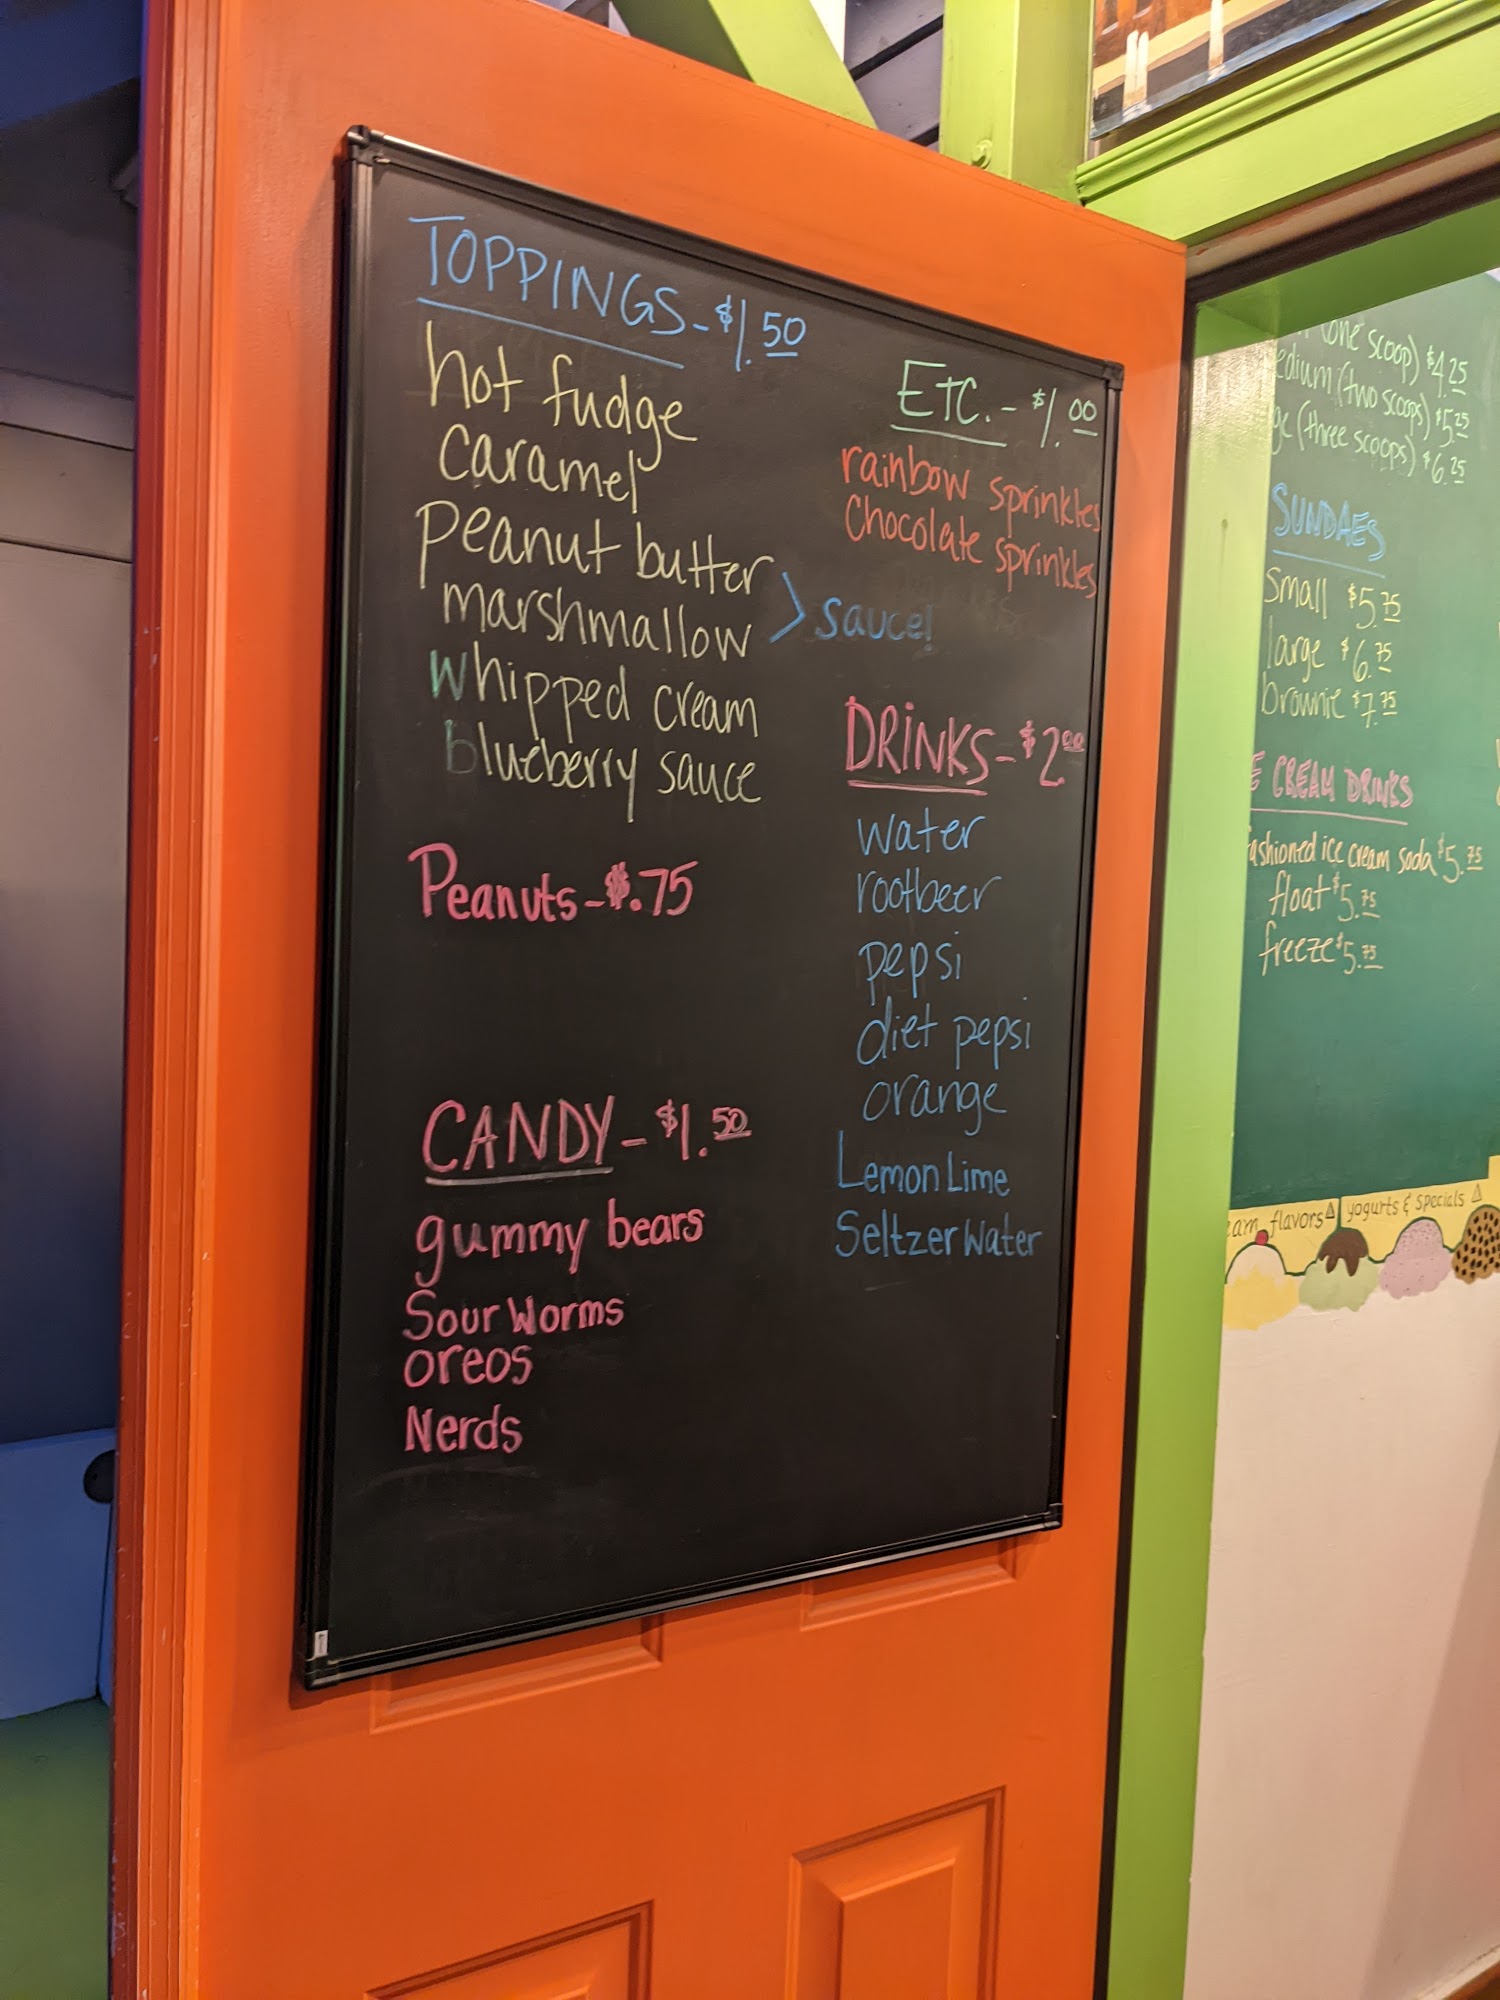 TOPPINGS - $1.50
hot fudge
caramel
peanut butter
marshmallow > sauce!
whipped cream
blueberry sauce
Peanuts - $.75
CANDY - $1.50
gummy bears
Sour Worms
oreos
Nerds
ETC. - $1.00
rainbow sprinkles
Chocolate sprinkles
DRINKS - $2.00
water
rootbeer
pepsi
diet pepsi
orange
Lemon Lime
Seltzer Water
(one scoop) $4.25
edium (two scoops) $5.25
ge (three scoops) $6.25
SUNDAES
Small $5.75
large $6.75
brownie $7.75
E CREAM DRINKS
ashioned ice cream soda $5.75
float $5.75
freeze $5.75
eam flavors
yogurts & specials